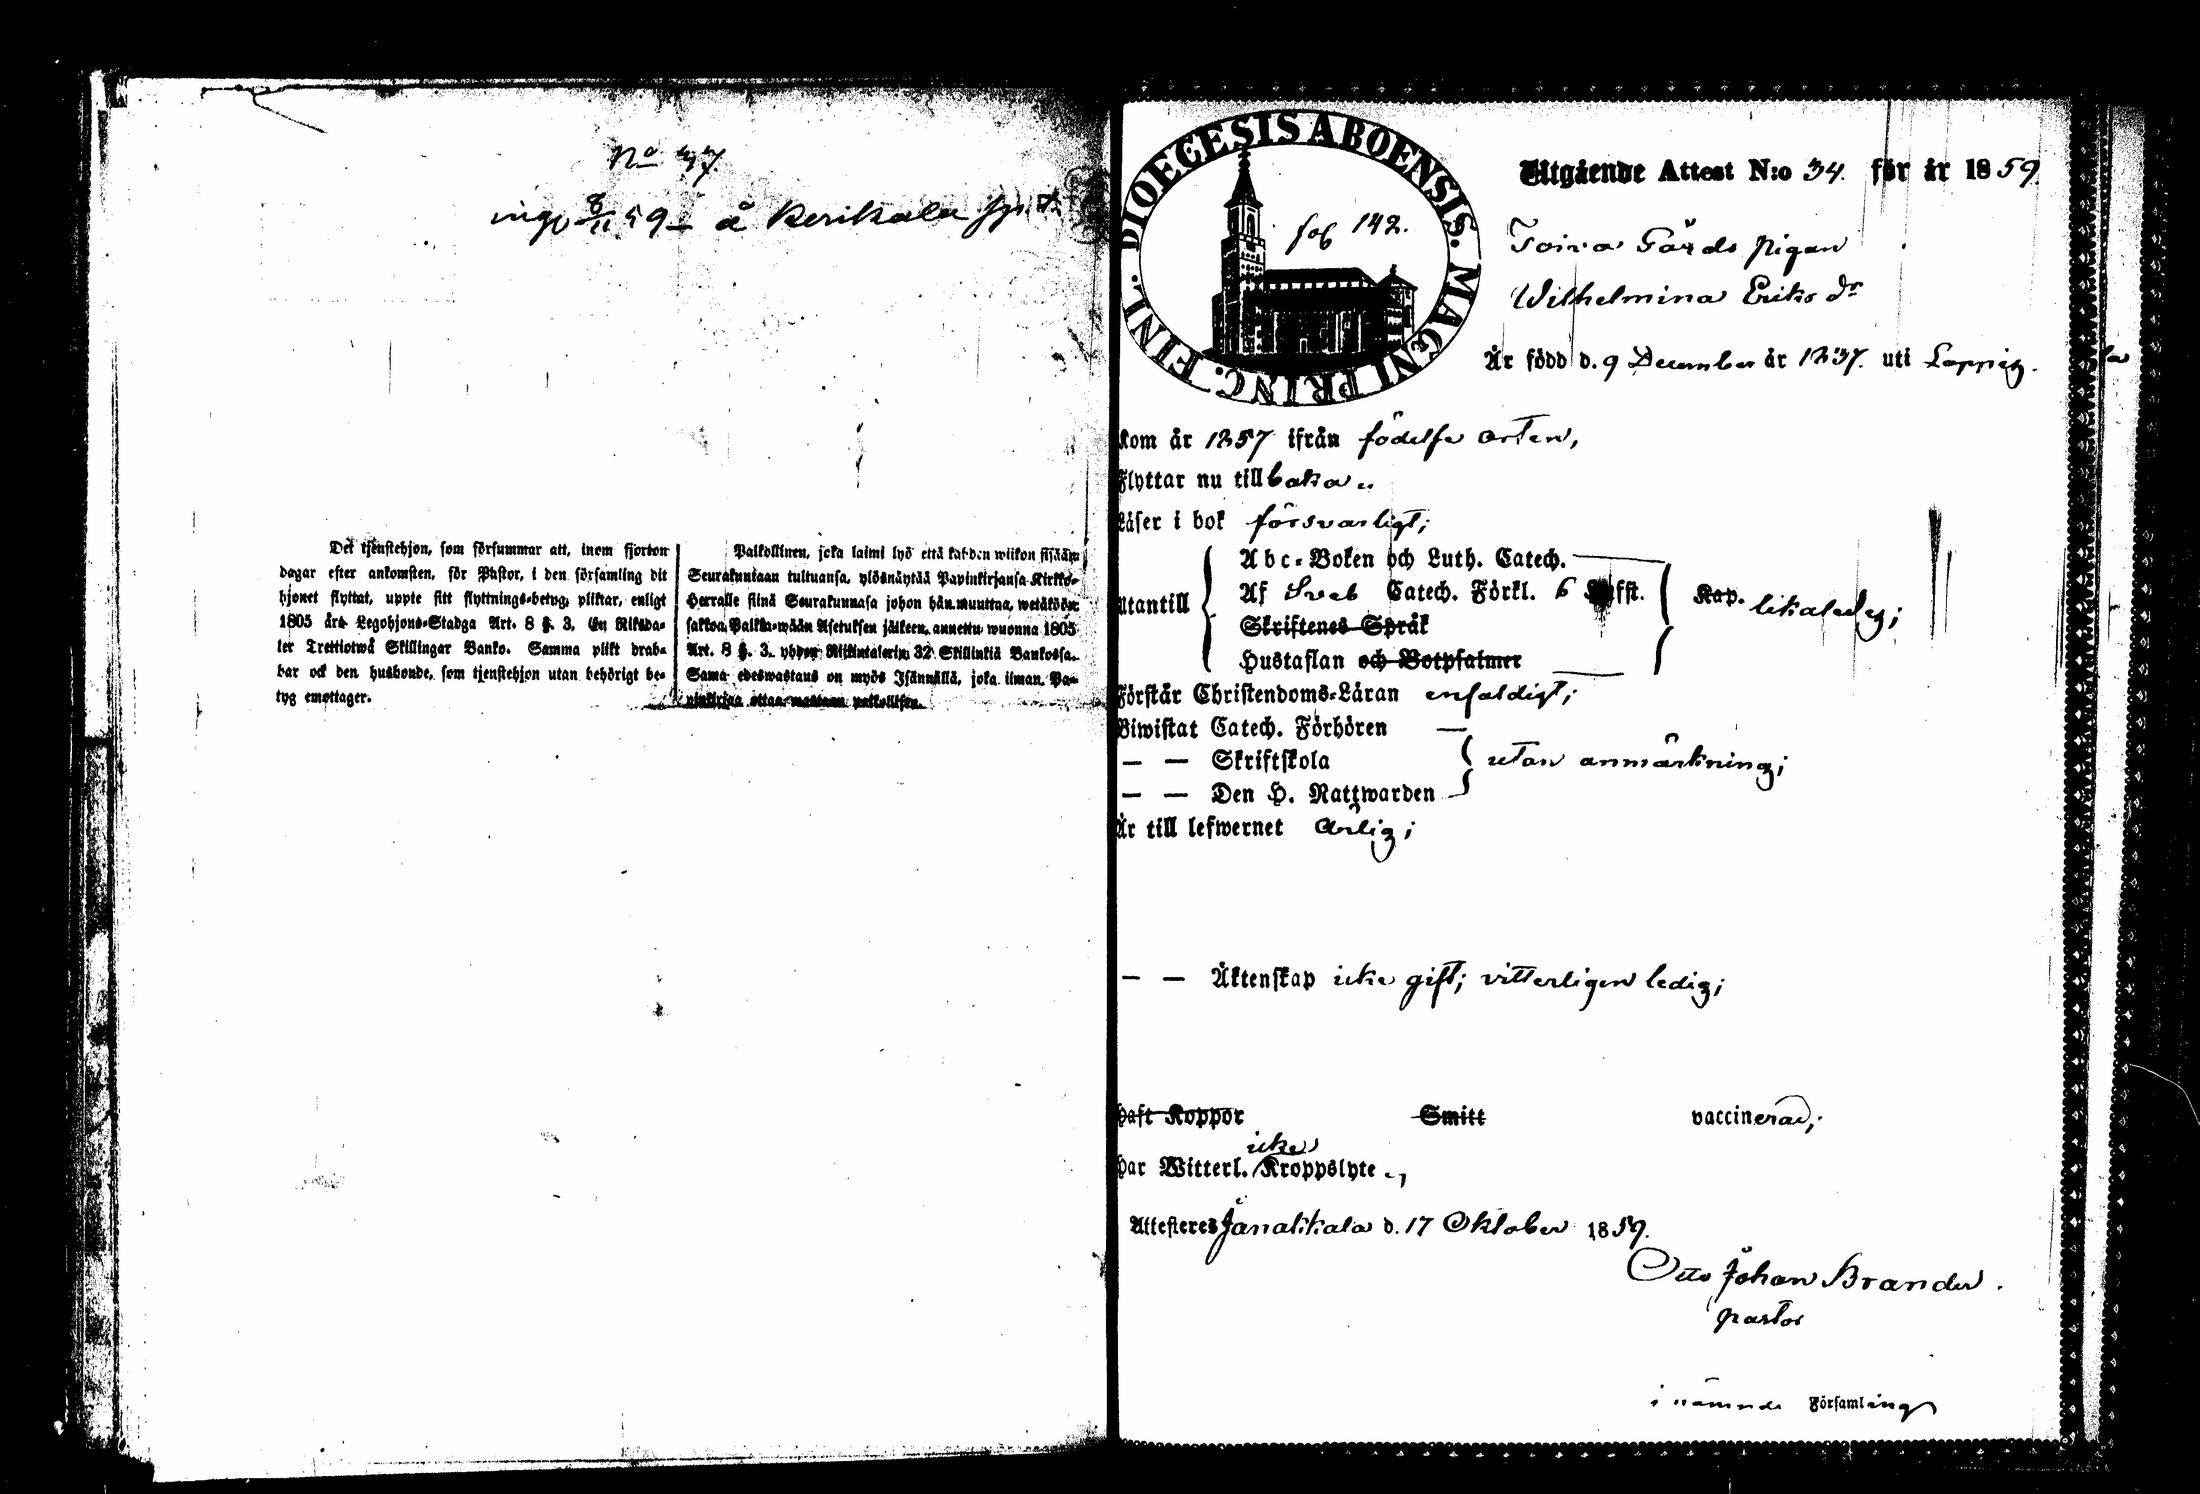 No 47.
ing. 8/11 59 å Kerikala
Det tjenstehjon, som försummar att, inom fjorton
dagar efter ankomsten, för Pastor, i den församling dit
hjonet flyttat, uppte sitt flyttnings-betyg, pliktar, enligt
1805 års Legohjons-Stadga Art. 8 §. 3, En Riksda-
ler Trettiotwå Skillingar Banko. Samma plikt drab-
bar ock den husbonde, som tjenstehjon utan behörigt be-
tyg emottager.
Palkollinen, joka laimi lyö että kahden wiikon sisään
Seurakuntaan tultuansa, ylösnäytää Papinkirjansa Kirkko-
Herralle siinä Seurakunnasa johon hän muuttaa, wetäköön
sakkoa Palkka-wään Asetuksen jälkeen, annettu wuonna 1805
Art. 8 §. 3. yhden Riikintalerin 32 Skillinkiä Bankossa.
Sama edeswastaus on myös Isännällä, joka ilman Pa-
pinkirjaa ottaa wastaan palkollisen.
DIOECESIS ABOENSIS. MAGNI PRINC. FINL.
fol 142.
Utgående Attest N:o 34. för år 1859.
Toivo Gårds pigan
Wilhelmina Eriks dr
Är född d. 9 December år 1837. uti Loppis.
Kom år 1857 ifrån födelse orten,
Flyttar nu tillbaka
Läser i bok försvarligt;
Abc-Boken och Luth. Catech.
Utantill Af Sveb Catech. Förkl. 6 Kap. likaledes;
Skriftenes Språk
Hustaflan och Botpsalmer
Förstår Christendoms-Läran enfaldigt;
Biwistat Catech. Förhören —
— — Skriftskola utan anmärkning;
— — Den H. Nattwarden
Är till lefwernet ärlig;
— — Äktenskap icke gift; vitterligen ledig;
Haft Koppor Smitt vaccinerad;
icke
Har Witterl. Kroppslyte
Attesteres Janakkala d. 17 Oktober 1859.
Otto Johan Brander.
pastor
i nämnde Församling